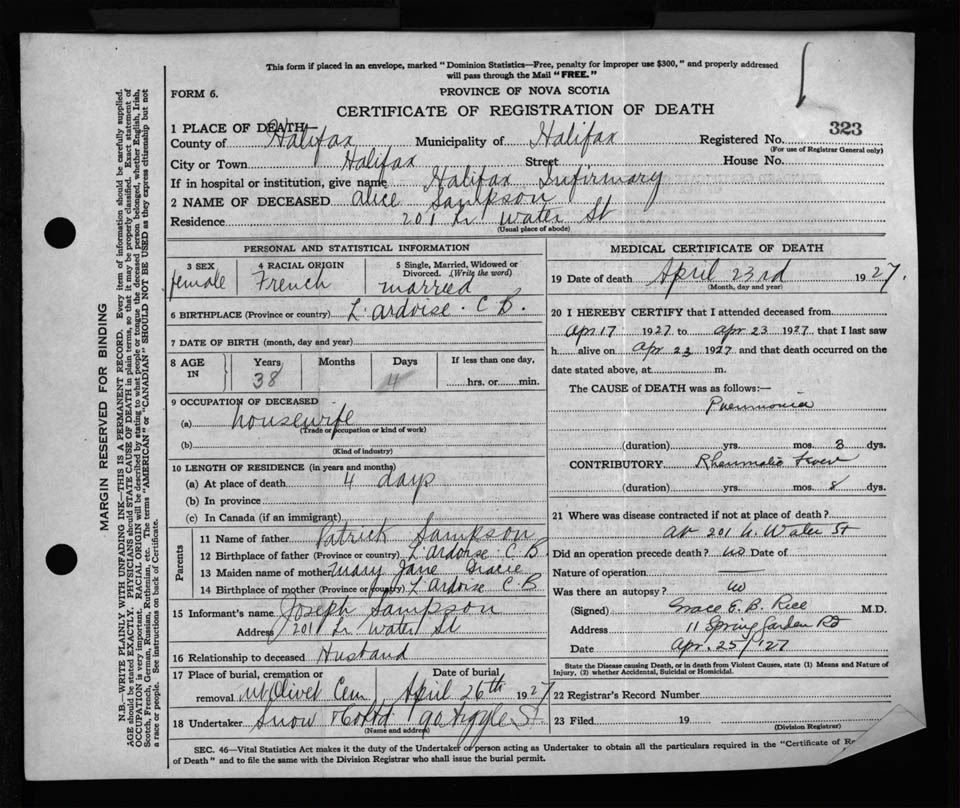 This form if placed in an envelope, marked "Dominion Statistics—Free, penalty for improper use $300," and properly addressed
will pass through the Mail "FREE."
FORM 6.
PROVINCE OF NOVA SCOTIA
CERTIFICATE OF REGISTRATION OF DEATH
323
1 PLACE OF DEATH—
County of Halifax Municipality of Halifax Registered No.
(For use of Registrar General only)
City or Town Halifax Street House No.
If in hospital or institution, give name Halifax Infirmary
2 NAME OF DECEASED Alice Sampson
Residence 201 Lr. Water St
(Usual place of abode)
PERSONAL AND STATISTICAL INFORMATION
3 SEX
female
4 RACIAL ORIGIN
French
5 Single, Married, Widowed or Divorced. (Write the word)
married
6 BIRTHPLACE (Province or country) L'ardoise. C B.
7 DATE OF BIRTH (month, day and year)
8 AGE IN
Years
38
Months
Days
4
If less than one day,
hrs. or min.
9 OCCUPATION OF DECEASED
(a) housewife
(Trade or occupation or kind of work)
(b)
(Kind of industry)
10 LENGTH OF RESIDENCE (in years and months)
(a) At place of death 4 days
(b) In province
(c) In Canada (if an immigrant)
Parents
11 Name of father Patrick Sampson
12 Birthplace of father (Province or country) L'ardoise C B
13 Maiden name of mother Mary Jane
14 Birthplace of mother (Province or country) L'Ardoise C.B
15 Informant's name Joseph Sampson
Address 201 Lr Water St
16 Relationship to deceased Husband
17 Place of burial, cremation or Date of burial
removal Mt Olivet Cem April 26th 1927
18 Undertaker Snow & Co Ltd 90 Argyle St
(Name and address)
MEDICAL CERTIFICATE OF DEATH
19 Date of death April 23rd 1927.
(Month, day and year)
20 I HEREBY CERTIFY that I attended deceased from
Apr 17 1927 to Apr 23 1927, that I last saw
h alive on Apr 23 1927 and that death occurred on the
date stated above, at m.
The CAUSE of DEATH was as follows:—
Pneumonia
(duration) yrs. mos. 3 dys.
CONTRIBUTORY Rheumatic Fever
(duration) yrs. mos. 8 dys.
21 Where was disease contracted if not at place of death?
at 201 Water St
Did an operation precede death? no Date of
Nature of operation
Was there an autopsy? no
(Signed) Grace E. B. Rice M.D.
Address 11 Spring Garden Rd
Date Apr. 25/27
State the Disease causing Death, or in death from Violent Causes, state (1) Means and Nature of
Injury, (2) whether Accidental, Suicidal or Homicidal.
22 Registrar's Record Number
23 Filed 19
(Division Registrar)
SEC. 46—Vital Statistics Act makes it the duty of the Undertaker or person acting as Undertaker to obtain all the particulars required in the "Certificate of
of Death" and to file the same with the Division Registrar who shall issue the burial permit.
MARGIN RESERVED FOR BINDING
N.B.—WRITE PLAINLY WITH UNFADING INK—THIS IS A PERMANENT RECORD. Every item of information should be carefully supplied.
AGE should be stated EXACTLY. PHYSICIANS should STATE CAUSE OF DEATH in plain terms, so that it may be properly classified. Exact statement of
OCCUPATION is very important. RACIAL ORIGIN will be described by stating to what people or tongue the deceased person belonged, whether English, Irish,
Scotch, French, German, Russian, Ruthenian, etc. The terms "AMERICAN" or "CANADIAN" SHOULD NOT BE USED as they express citizenship but not
a race or people. See instructions on back of Certificate.